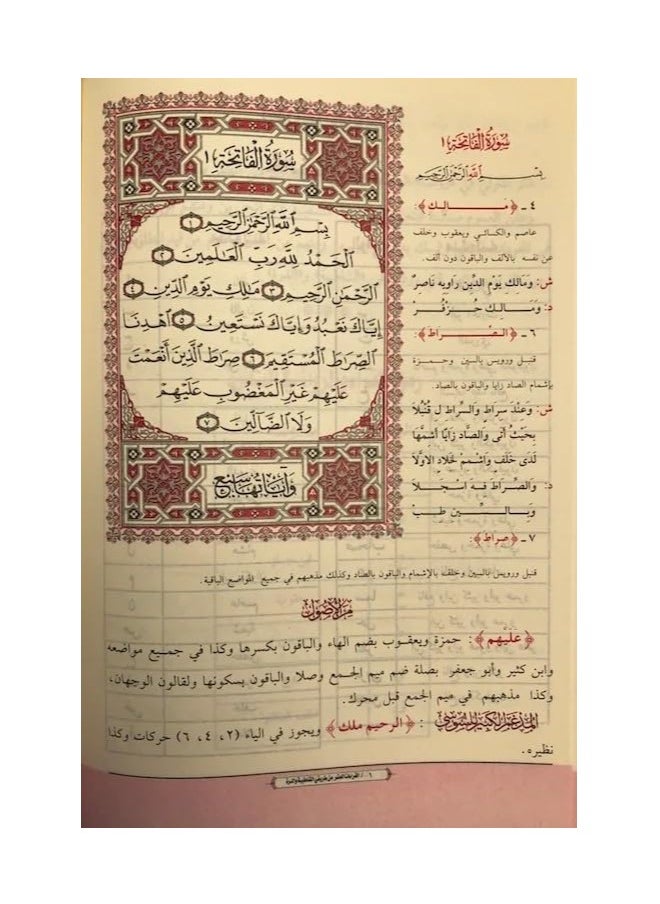 سُورَةُ الْفَاتِحَةِ ١
بِسْمِ اللَّهِ الرَّحْمَٰنِ الرَّحِيمِ ١
الْحَمْدُ لِلَّهِ رَبِّ الْعَالَمِينَ ٢
الرَّحْمَٰنِ الرَّحِيمِ ٣ مَالِكِ يَوْمِ الدِّينِ ٤
إِيَّاكَ نَعْبُدُ وَإِيَّاكَ نَسْتَعِينُ ٥ اهْدِنَا
الصِّرَاطَ الْمُسْتَقِيمَ ٦ صِرَاطَ الَّذِينَ أَنْعَمْتَ
عَلَيْهِمْ غَيْرِ الْمَغْضُوبِ عَلَيْهِمْ
وَلَا الضَّالِّينَ ٧
وَآيَاتُهَا سَبْعٌ
سُورَةُ الْفَاتِحَةِ ١
بِسْمِ اللَّهِ الرَّحْمَٰنِ الرَّحِيمِ
٤ ـ ﴿مَـالِـك﴾ :
عاصم والكسائي ويعقوب وخلف
عن نفسه بالألف والباقون دون ألف.
ش: وَمَالِكِ يَوْمِ الدِّينِ رَاوِيهِ نَاصِرٌ
د: وَمَـالِـكِ حُـزْ فُـزْ
٦ ـ ﴿الصِّـرَاط﴾ :
قنبل ورويس بالسين وحمـزة
بإشمام الصاد زايا والباقون بالصاد.
ش: وَعِنْدَ سِرَاطٍ وَالسِّرَاطِ لِ قُنْبُلَا
بِحَيْثُ أَتَى وَالصَّادَ زَايًا أَشِمَّهَا
لَدَى خَلَفٍ وَاشْمِمْ لِخَلَّادِ الاوَّلَا
د: وَالصِّرَاطَ فِـهِ اسْـجِـلَا
وَبِـالـسِّـيـنِ طِـبْ
٧ ـ ﴿صِرَاط﴾ :
قنبل ورويس بالسين وخلف بالإشمام والباقون بالصاد وكذلك مذهبهم في جميع المواضع الباقية.
مِنَ الْأُصُولِ
﴿عَلَيْهِم﴾ : حمزة ويعقوب بضم الهاء والباقون بكسرها وكذا في جميع مواضعه
وابن كثير وأبو جعفر بصلة ضم ميم الجمع وصلا والباقون بسكونها ولقالون الوجهان،
وكذا مذهبهم في ميم الجمع قبل محرك.
المدغم الكبير للسوسي : ﴿الرحيم ملك﴾ ويجوز في الياء (٢، ٤، ٦) حركات وكذا
نظيره.
١ / القراءات العشر من طريقي الشاطبية والدرة